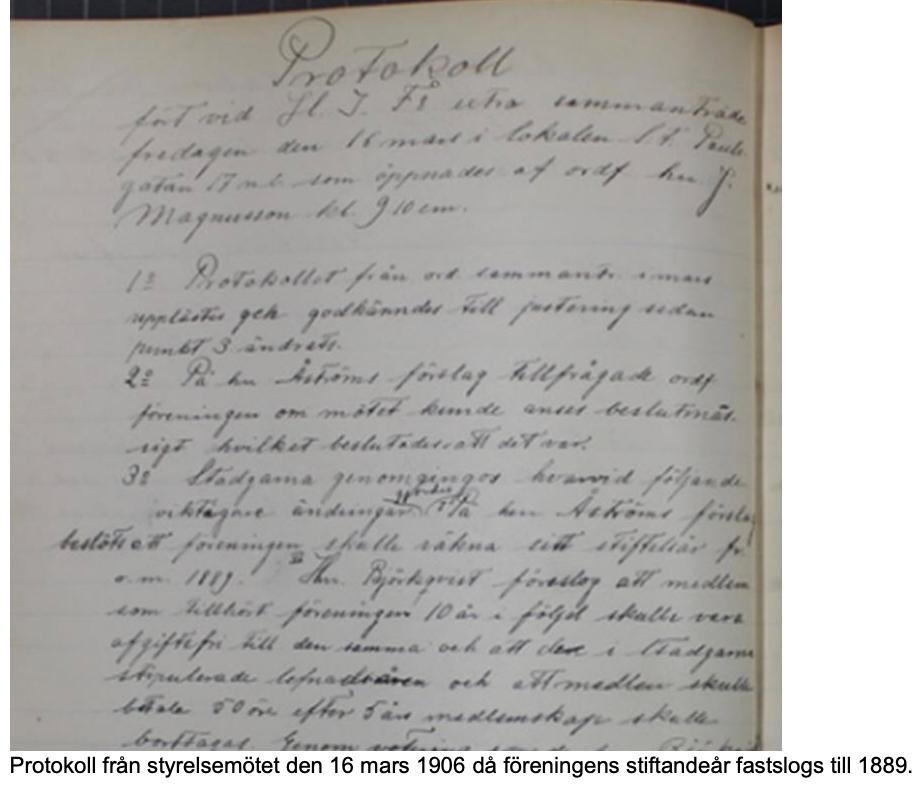 Protokoll
fört vid St. I. Fs extra sammanträde
fredagen den 16 mars i lokalen S:t Pauls
gatan 17 n.b. som öppnades af ordf hr J.
Magnusson kl. 9 10 em.
1o Protokollet från ord sammantr. i mars
upplästes och godkänndes till justering sedan
punkt 3 ändrats.
2o På hr Åströms förslag tillfrågade ordf
föreningen om mötet kunde anses beslutmäs-
sigt hvilket beslutades att det var.
3o Stadgarna genomgingos hvarvid följande
viktigare ändringar På herr Åströms förslag
beslöts att föreningen skulle räkna sitt stiftelseår fr.
o. m. 1889. Hr. Björkqvist föreslog att medlem
som tillhört föreningen 10 år i följd skulle vara
afgiftsfri till den samma och att de i stadgarna
stipulerade och att medlem skulle
betala 50 öre efter 5 års medlemskap skulle
borttagas. Genom votering
Protokoll från styrelsemötet den 16 mars 1906 då föreningens stiftandeår fastslogs till 1889.